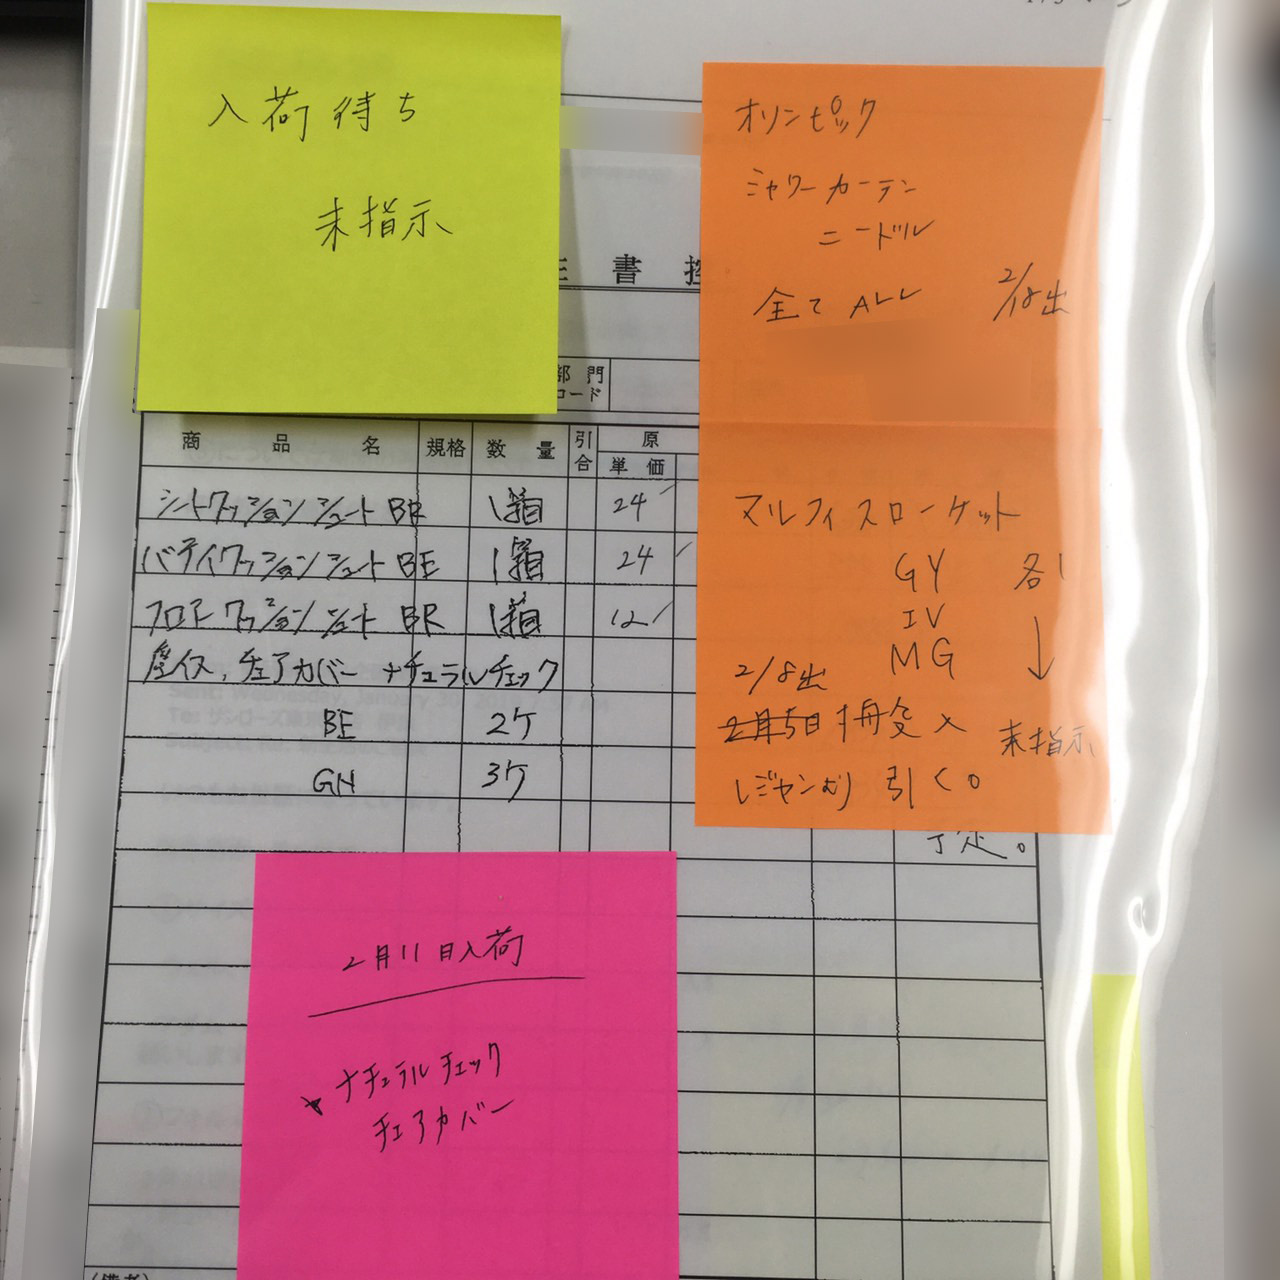 入荷待ち
未指示
オリンピック
シャワーカーテン
ニードル
全て ALL 2/18出
書 控
部門
コード
商品名 規格 数量 引合 原
単価
シートクッション シュート BR 1箱 24
バディクッション シュート BE 1箱 24
フロアークッション シュート BR 1箱 12
座イス、チェアカバー ナチュラルチェック
BE 2ケ
GN 3ケ
マルフィスローケット
GY 各1
IV
MG
2/8出
2月5日 入 未指示
引く。
予定。
2月11日入荷
ナチュラルチェック
チェアカバー
(備考)